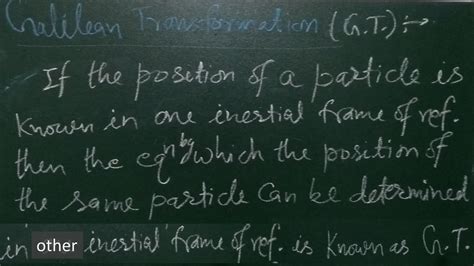 Galilean Transformation (G.T.):→
If the position of a particle is
known in one inertial frame of ref.
then the eqⁿ by which the position of
the same particle can be determined
in other inertial frame of ref. is known as G.T.